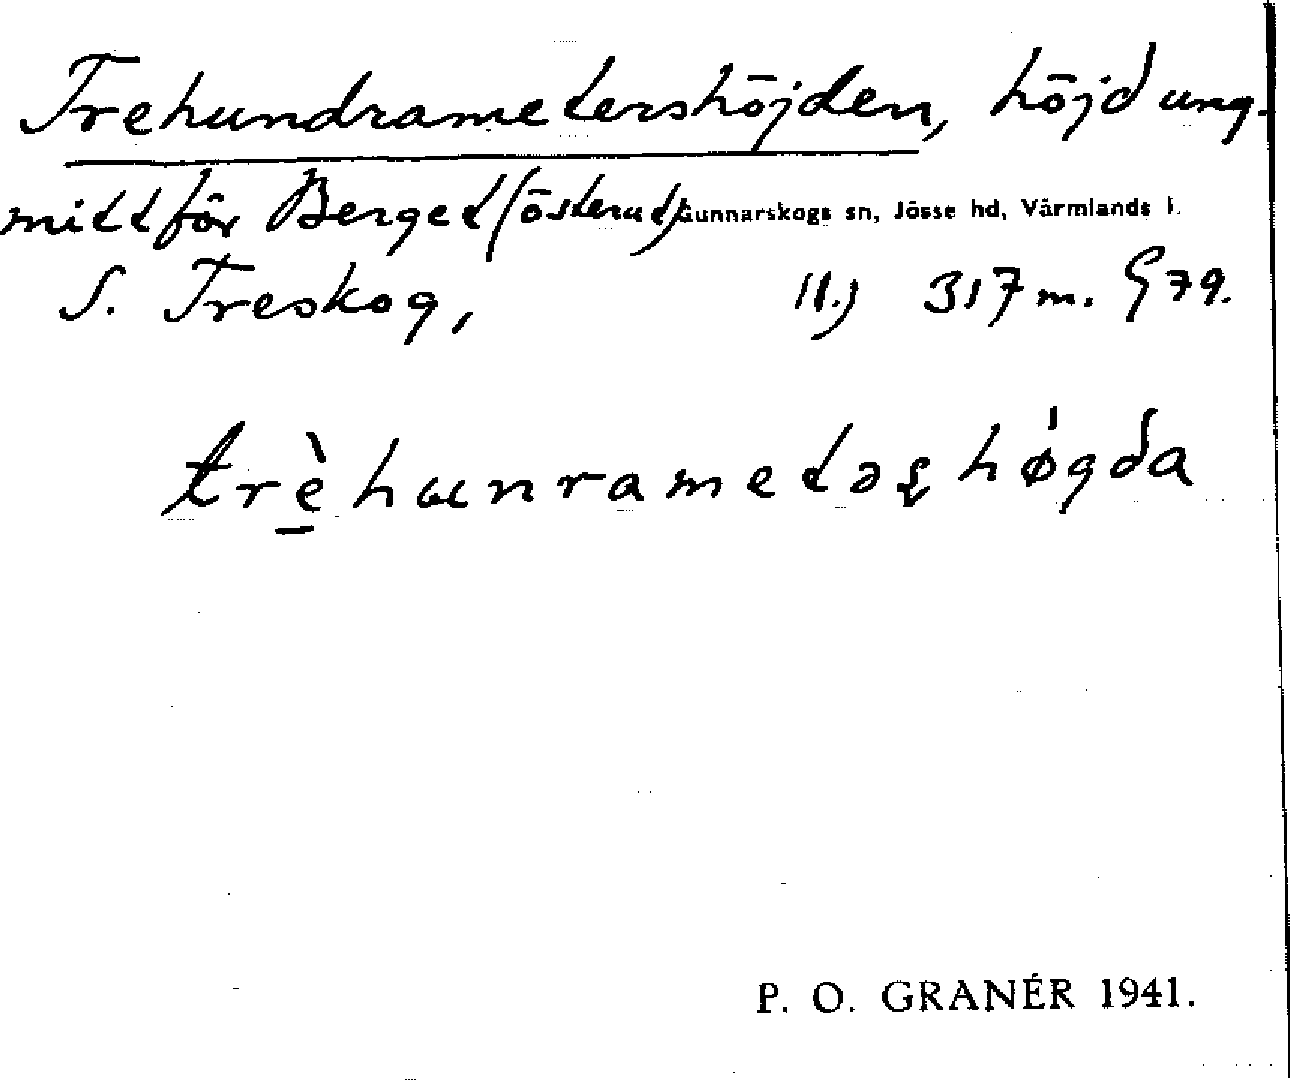 Trehundrametershöjden, höjd ung.
mitt för Berget (österut) Gunnarskogs sn, Jösse hd, Värmlands l.
S. Treskog, 11.) 317 m. G 79.
trèhunrametəʂhøgda
P. O. GRANÉR 1941.